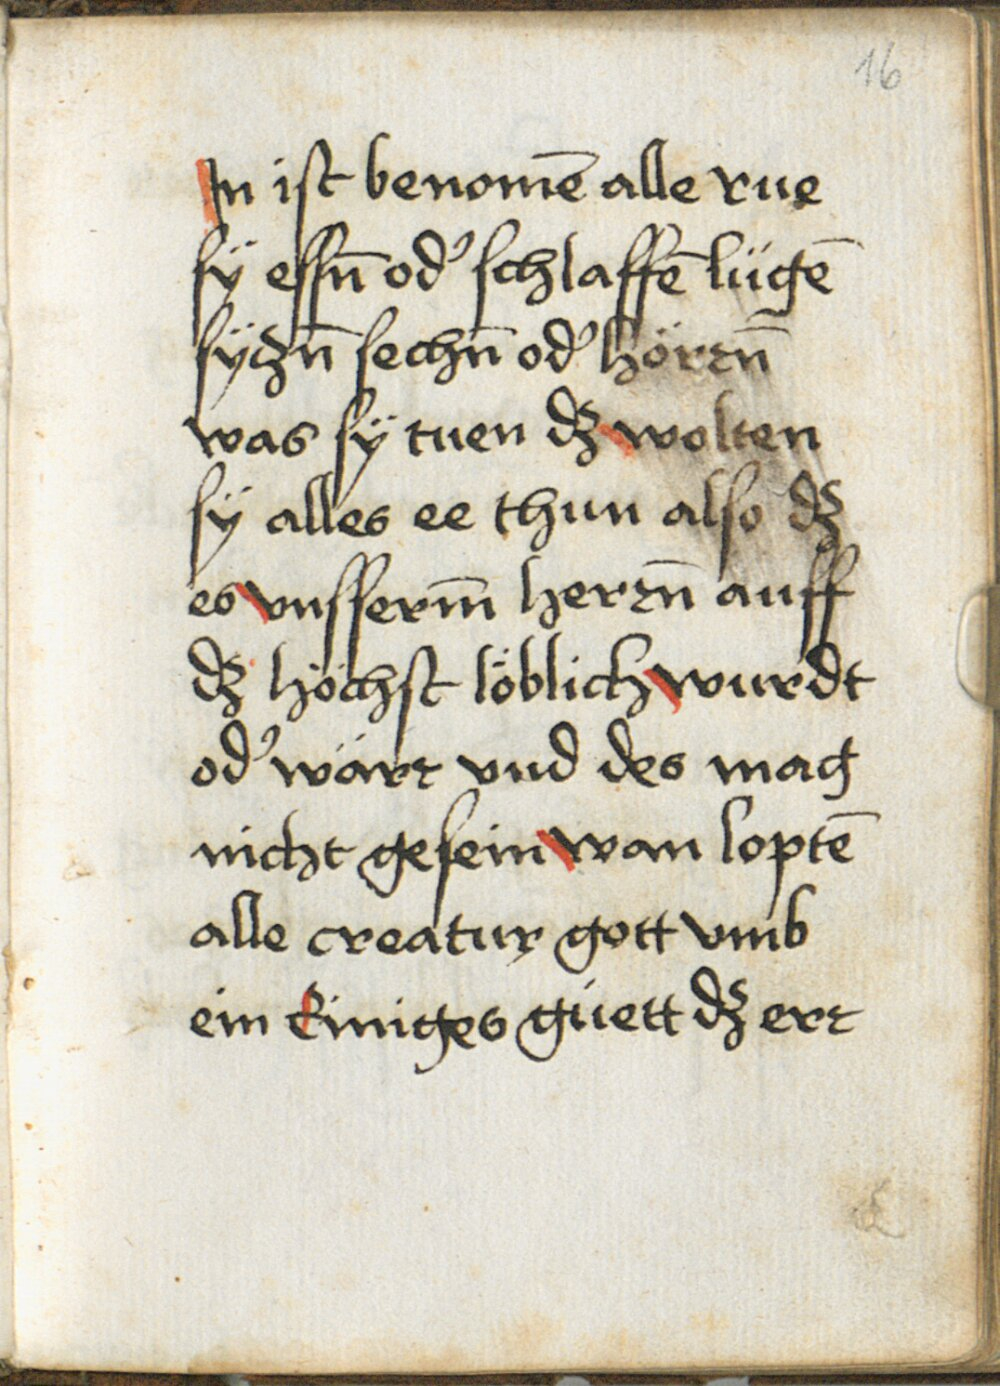 16
In ist benomē alle rue
sÿ essn̄ od' schlaffē lügē
sÿtzn̄ sechn̄ od' hörzn̄
was sÿ tuen dʒ wolten
sÿ alles ee thun also dʒ
es vnsserm̄ herzn̄ auff
dʒ höchst löblich wurdt
od' wärt vnd des mag
nicht gesein wan loptē
alle creatur gott vmb
ein Einiges güett dʒ ert